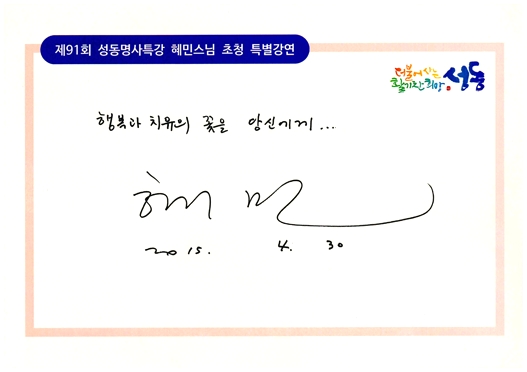 제91회 성동명사특강 혜민스님 초청 특별강연
더불어 사는
활기찬 희망 성동
행복과 치유의 꽃을 당신에게...
혜민
2015. 4. 30